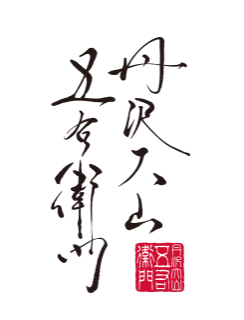 丹沢大山
五右衛門
丹沢大山
五右
衛門